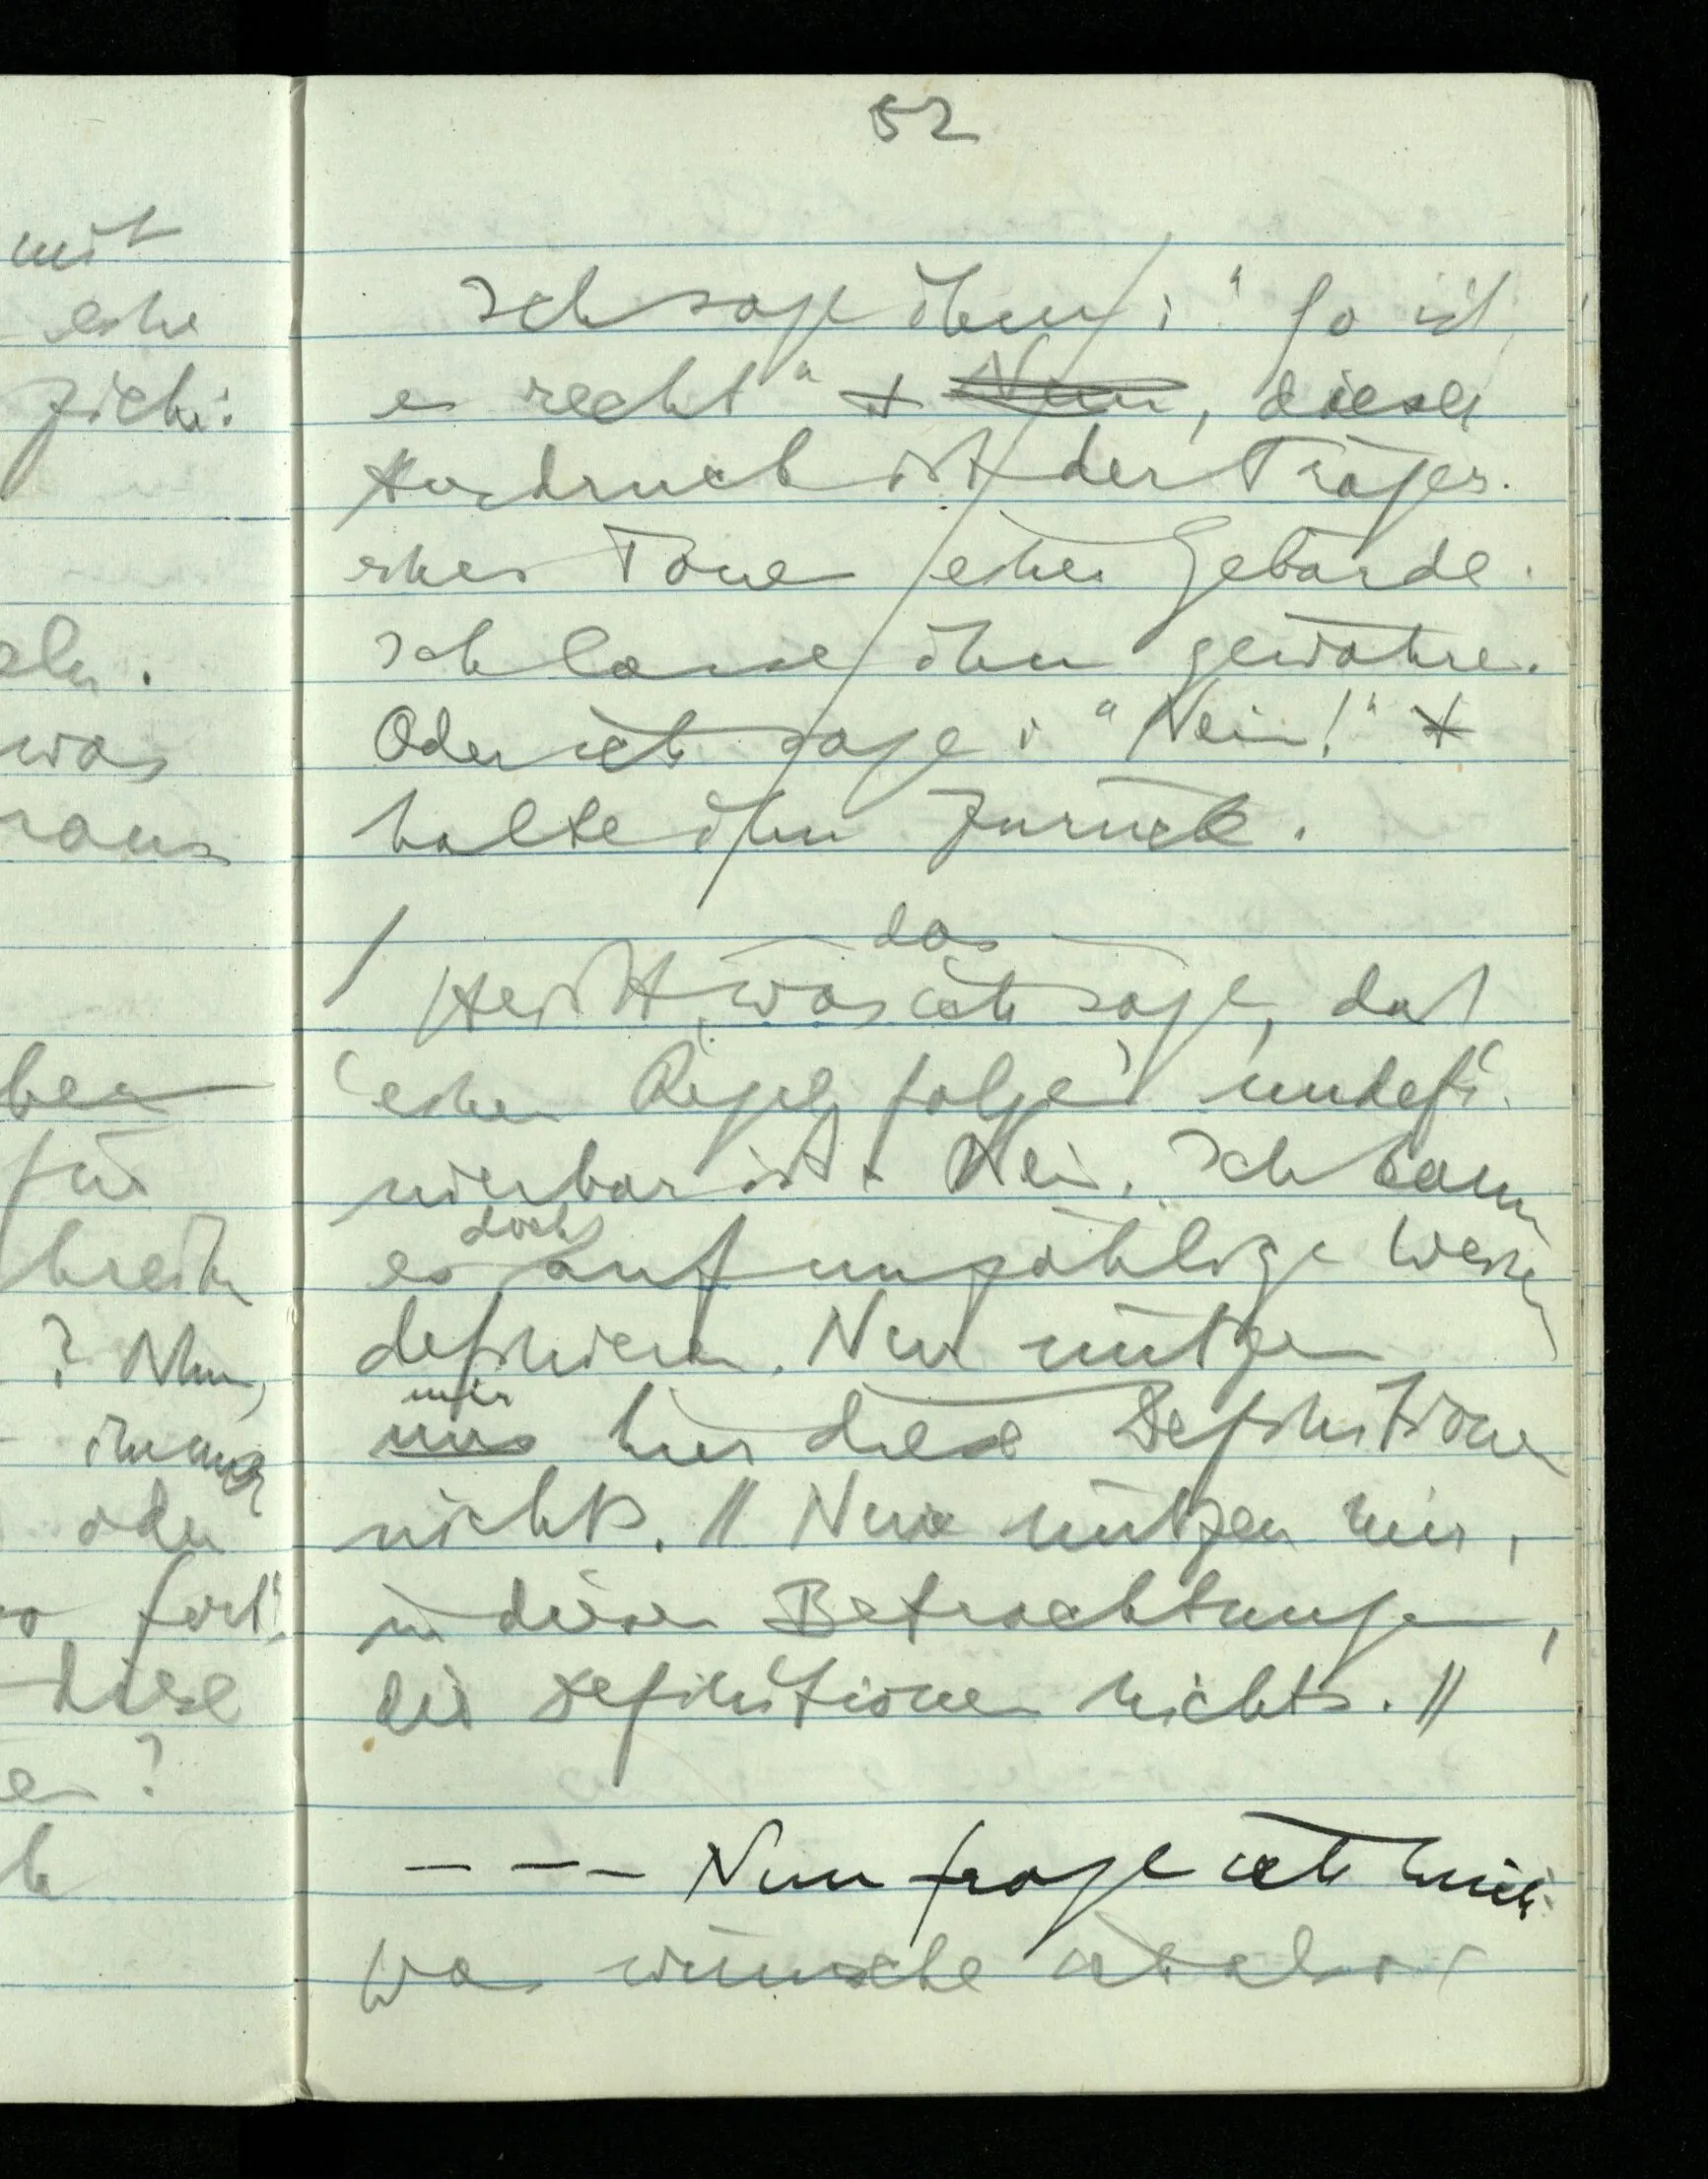 mit
eine
ziehe:
eln.
was
raus
ben
für
breite
? Nun,
immer
oder
so fort"
diese
en?
52
Ich sage ihm: "So ist
es recht" + Nun, dieser
Ausdruck ist der Träger
eines Tones einer Gebärde.
Ich lasse ihn gewähren.
Oder ich sage: "Nein!" +
halte ihn zurück.
das
/ Heißt, was ich sage, daß
'einer Regel folgen' undefi-
nierbar ist? Nein. Ich kann
doch
es auf unzählige Weisen
definieren. Nur nützen
mir
uns hier diese Definitionen
nichts. // Nur nützen mir,
in diesen Betrachtungen,
die Definitionen nichts. //
– – – Nun frage ich mich:
Was wünsche ich